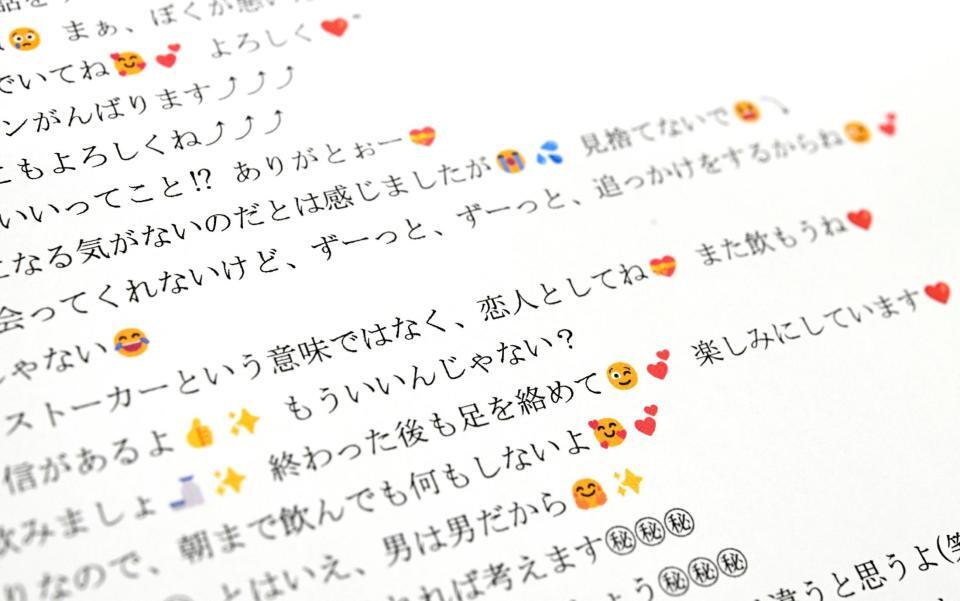 まぁ、ぼくが悪い
でいてね🥰💕 よろしく❤️
ンがんばります⤴⤴⤴
こもよろしくね⤴⤴⤴
いいってこと⁉ ありがとぉー💝
になる気がないのだとは感じましたが😭💦 見捨てないで
会ってくれないけど、ずーっと、ずーっと、追っかけをするからね💕
じゃない😂
ストーカーという意味ではなく、恋人としてね💝 また飲もうね❤️
信があるよ👍✨ もういいんじゃない？
飲みましょ🍶✨ 終わった後も足を絡めて😉💕 楽しみにしています❤️
りなので、朝まで飲んでも何もしないよ🥰💕
とはいえ、男は男だから🤗✨
れば考えます㊙㊙㊙
ょう㊙㊙㊙
違うと思うよ(笑